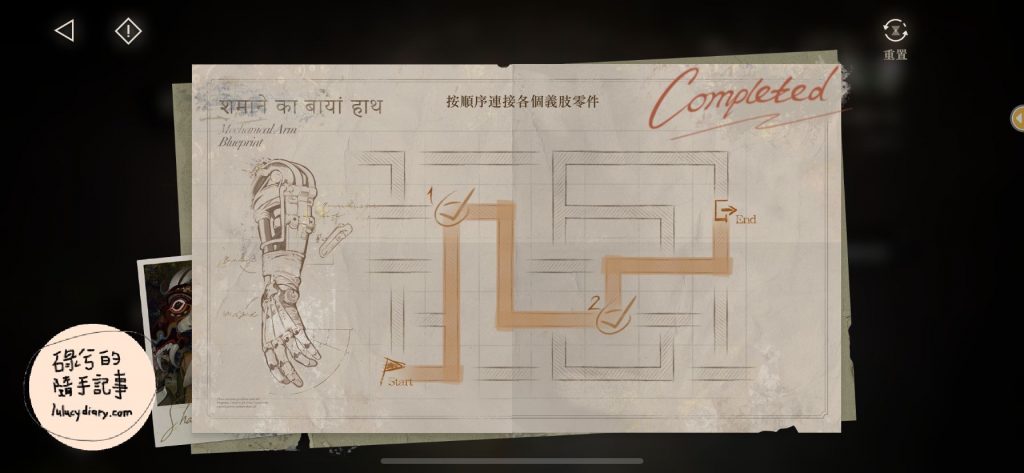 重置
शमाने का बायां हाथ
按順序連接各個義肢零件
Completed
Mechanical Arm
Blueprint
1
End
2
Start
碌兮的
隨手記事
lulucydiary.com
Sha